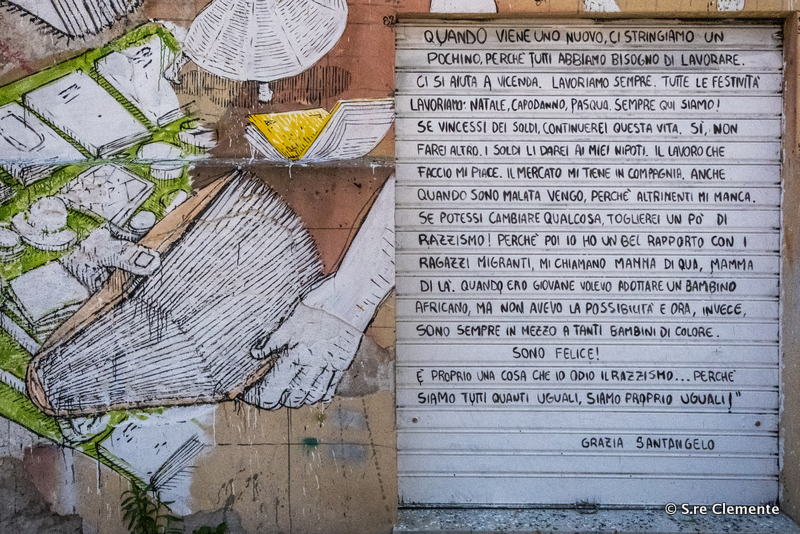 QUANDO VIENE UNO NUOVO, CI STRINGIAMO UN
POCHINO, PERCHÈ TUTTI ABBIAMO BISOGNO DI LAVORARE.
CI SI AIUTA A VICENDA. LAVORIAMO SEMPRE. TUTTE LE FESTIVITA'
LAVORIAMO: NATALE, CAPODANNO, PASQUA. SEMPRE QUI SIAMO!
SE VINCESSI DEI SOLDI, CONTINUEREI QUESTA VITA. SÌ, NON
FAREI ALTRO. I SOLDI LI DAREI AI MIEI NIPOTI. IL LAVORO CHE
FACCIO MI PIACE. IL MERCATO MI TIENE IN COMPAGNIA. ANCHE
QUANDO SONO MALATA VENGO, PERCHÈ ALTRIMENTI MI MANCA.
SE POTESSI CAMBIARE QUALCOSA, TOGLIEREI UN PO' DI
RAZZISMO! PERCHÈ POI IO HO UN BEL RAPPORTO CON I
RAGAZZI MIGRANTI, MI CHIAMANO MAMMA DI QUA, MAMMA
DI LÀ. QUANDO ERO GIOVANE VOLEVO ADOTTARE UN BAMBINO
AFRICANO, MA NON AVEVO LA POSSIBILITA' E ORA, INVECE,
SONO SEMPRE IN MEZZO A TANTI BAMBINI DI COLORE.
SONO FELICE!
È PROPRIO UNA COSA CHE IO ODIO IL RAZZISMO... PERCHÈ
SIAMO TUTTI QUANTI UGUALI, SIAMO PROPRIO UGUALI!"
GRAZIA SANTANGELO
© S.re Clemente